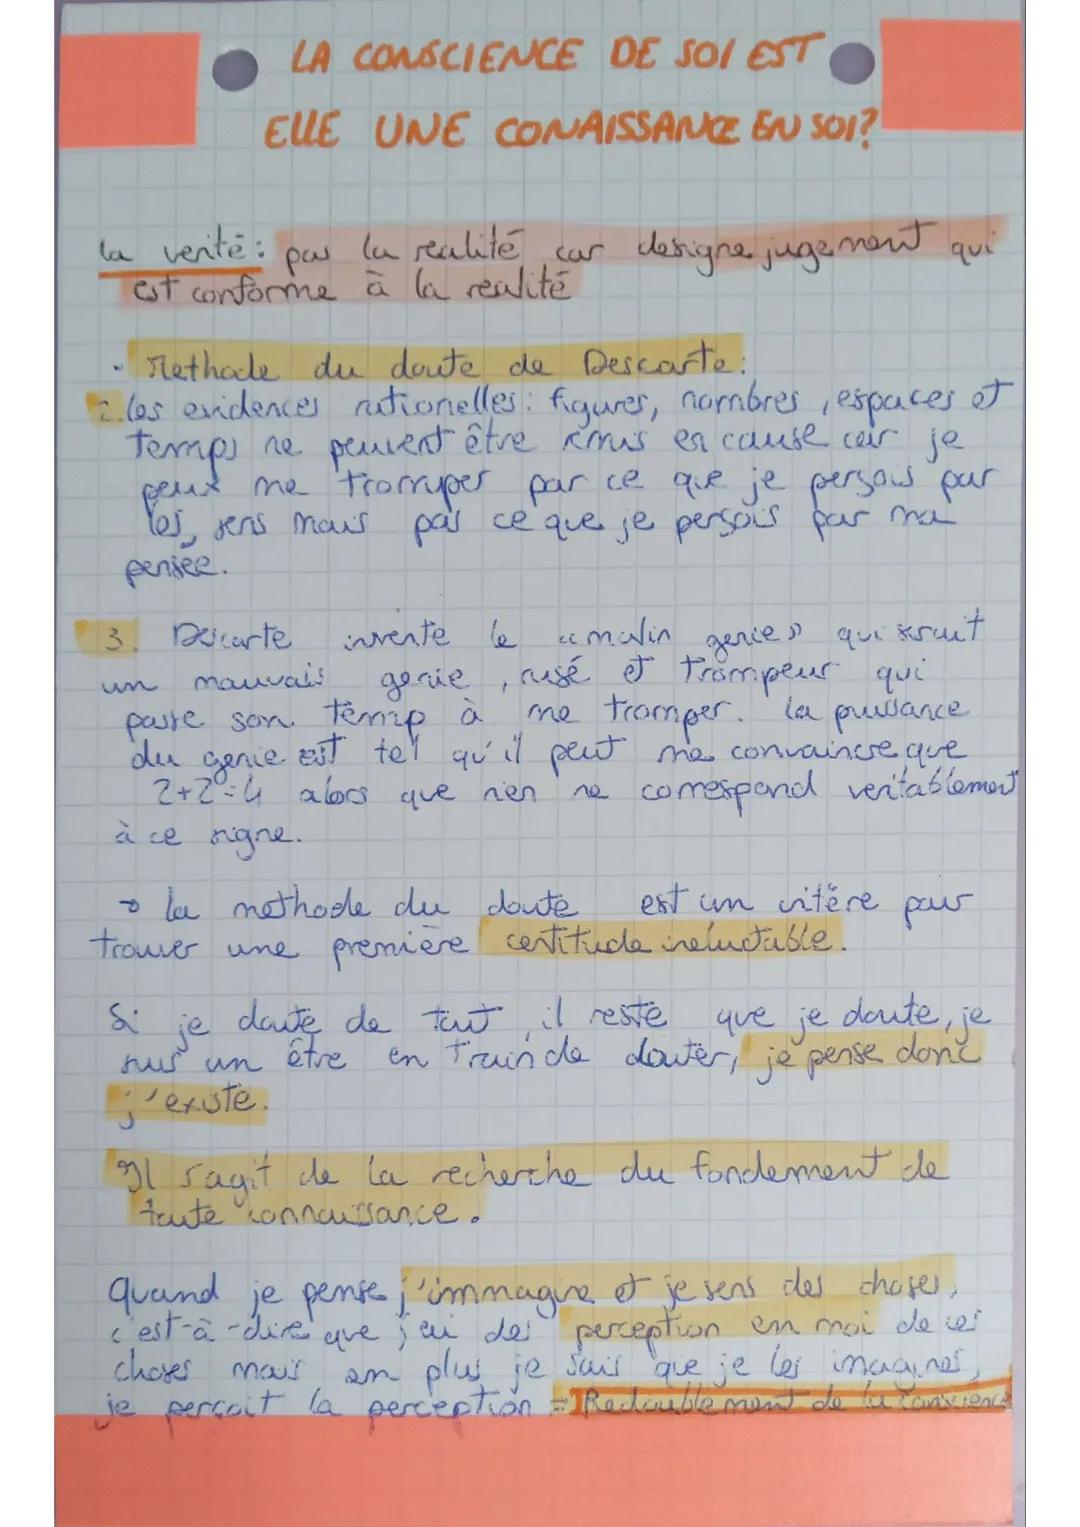 LA CONSCIENCE DE SOI EST
ELLE UNE CONAISSANCE EN SOI?
la verité: pas la realité car designe jugement qui
est conforme à la realité
- Methode du doute de Descarte:
2. les evidences rationelles: figures, nombres, espaces et
temps ne peuvent être remis en cause car je
peux me tromper par ce que je persois par
les sens mais pas ce que je persois par ma
pensée.
3. Descarte invente le "malin genie" qui serait
un mauvais genie, rusé et trompeur qui
passe son temp à me tromper. la puissance
du genie est tel qu'il peut me convaincre que
2+2=4 alors que rien ne correspond veritablement
à ce signe.
→ la methode du doute est un critère pour
trouver une première certitude ineluctable.
Si je doute de tout, il reste que je doute, je
suis un être en train de douter, je pense donc
j'existe.
Il s'agit de la recherche du fondement de
toute connaissance.
Quand je pense j'immagine et je sens des choses,
c'est-à-dire que j'ai des perception en moi de ces
choses mais en plus je sais que je les imagines,
je perçoit la perception = Redoublement de la conscience